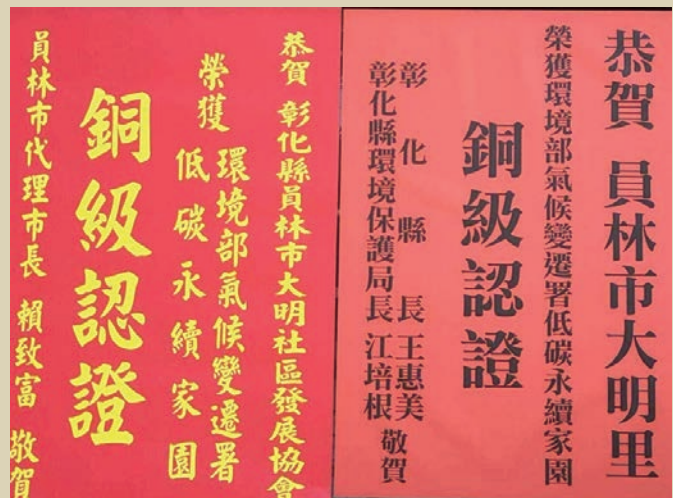 恭賀 員林市大明里
榮獲環境部氣候變遷署低碳永續家園
銅級認證
彰化縣長 王惠美
彰化縣環境保護局長 江培根 敬賀
恭賀 彰化縣員林市大明社區發展協會
榮獲 環境部氣候變遷署
低碳永續家園
銅級認證
員林市代理市長 賴致富 敬賀